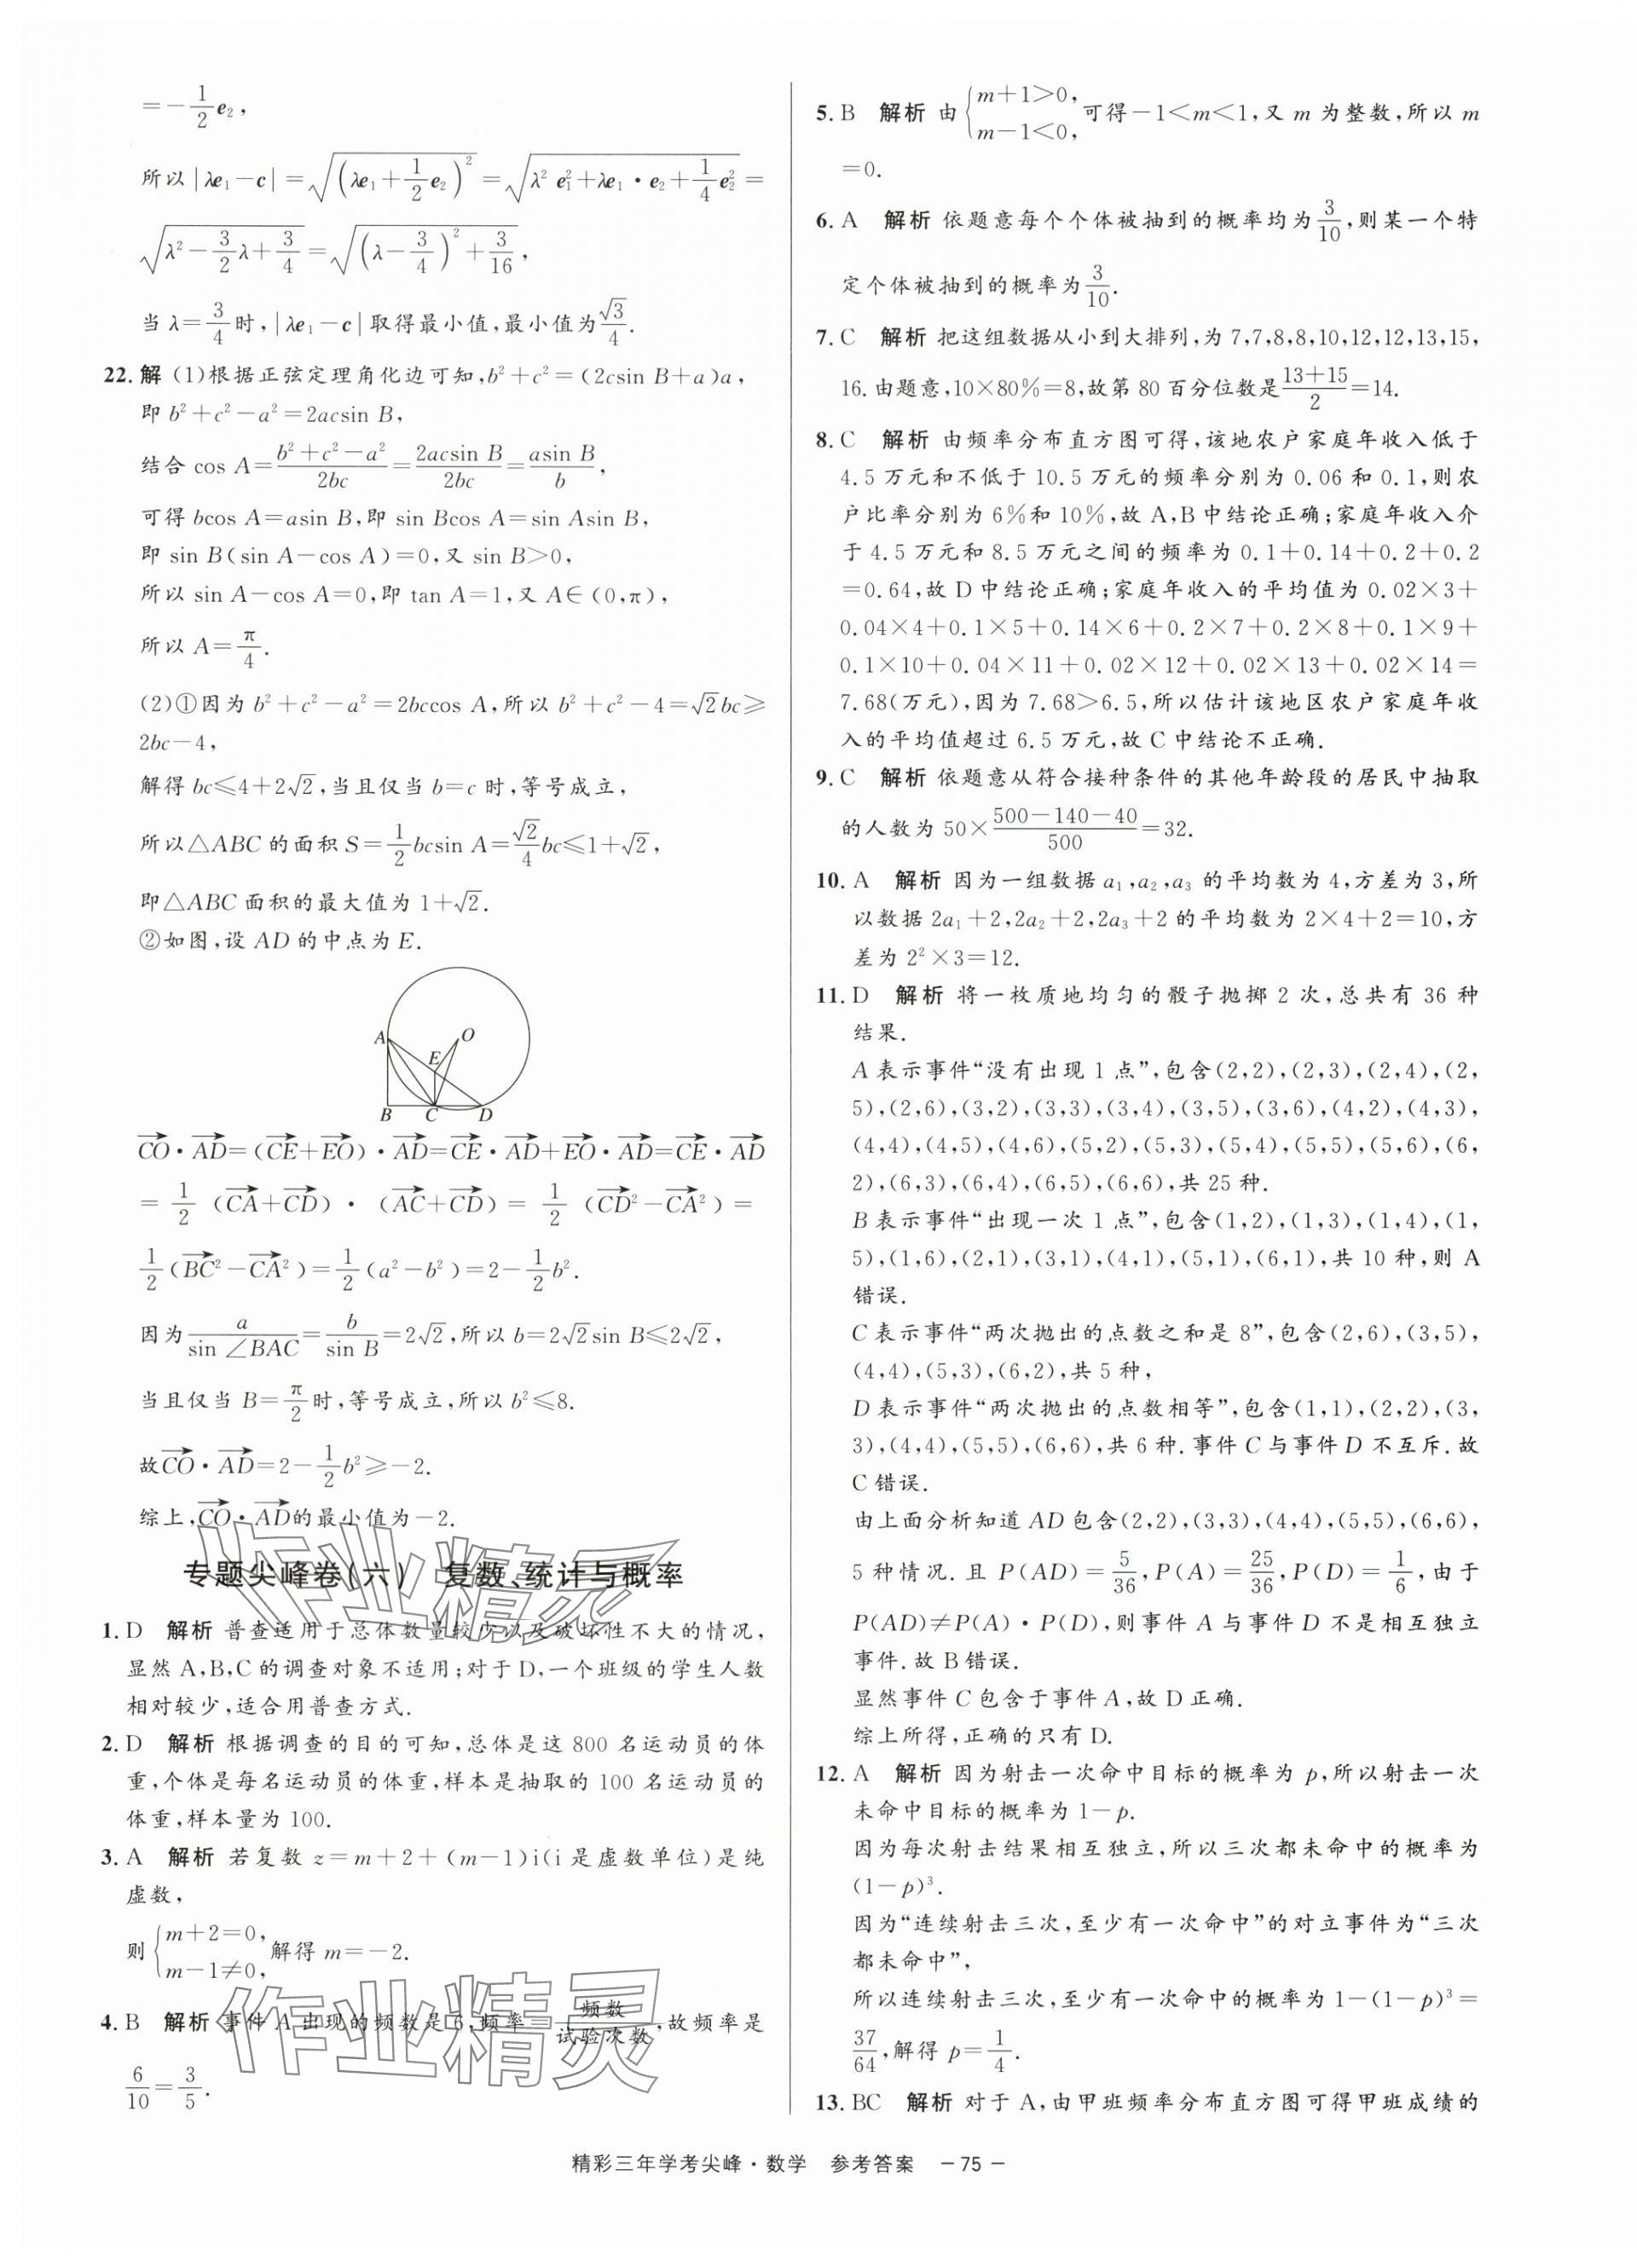 =-\frac{1}{2}e₂,
所以|λe₁-c|=\sqrt{(λe₁+\frac{1}{2}e₂)²}=\sqrt{λ² e₁²+λe₁·e₂+\frac{1}{4}e₂²}=
\sqrt{λ²-\frac{3}{2}λ+\frac{3}{4}}=\sqrt{(λ-\frac{3}{4})²+\frac{3}{16}},
当λ=\frac{3}{4}时,|λe₁-c|取得最小值,最小值为\frac{√3}{4}.
22.解 (1)根据正弦定理角化边可知,b²+c²=(2csin B+a)a,
即 b²+c²-a²=2acsin B,
结合 cos A=\frac{b²+c²-a²}{2bc}=\frac{2acsin B}{2bc}=\frac{asin B}{b},
可得 bcos A=asin B,即 sin Bcos A=sin Asin B,
即 sin B(sin A-cos A)=0,又 sin B>0,
所以 sin A-cos A=0,即 tan A=1,又 A∈(0,π),
所以 A=\frac{π}{4}.
(2)①因为 b²+c²-a²=2bccos A,所以 b²+c²-4=√2bc≥
2bc-4,
解得 bc≤4+2√2,当且仅当 b=c 时,等号成立,
所以△ABC 的面积 S=\frac{1}{2}bcsin A=\frac{√2}{4}bc≤1+√2,
即△ABC 面积的最大值为 1+√2.
②如图,设 AD 的中点为 E.
A
O
E
B C D
\vec{CO}·\vec{AD}=(\vec{CE}+\vec{EO})·\vec{AD}=\vec{CE}·\vec{AD}+\vec{EO}·\vec{AD}=\vec{CE}·\vec{AD}
=\frac{1}{2}(\vec{CA}+\vec{CD})·(\vec{AC}+\vec{CD})=\frac{1}{2}(\vec{CD}²-\vec{CA}²)=
\frac{1}{2}(\vec{BC}²-\vec{CA}²)=\frac{1}{2}(a²-b²)=2-\frac{1}{2}b².
因为\frac{a}{sin∠BAC}=\frac{b}{sin B}=2√2,所以 b=2√2sin B≤2√2,
当且仅当 B=\frac{π}{2}时,等号成立,所以 b²≤8.
故\vec{CO}·\vec{AD}=2-\frac{1}{2}b²≥-2.
综上,\vec{CO}·\vec{AD}的最小值为-2.
专题尖峰卷(六) 复数、统计与概率
1. D 解析 普查适用于总体数量较少以及破坏性不大的情况,
显然 A,B,C 的调查对象不适用;对于 D,一个班级的学生人数
相对较少,适合用普查方式.
2. D 解析 根据调查的目的可知,总体是这 800 名运动员的体
重,个体是每名运动员的体重,样本是抽取的 100 名运动员的
体重,样本量为 100.
3. A 解析 若复数 z=m+2+(m-1)i(i 是虚数单位)是纯
虚数,
则{m+2=0, m-1≠0,解得 m=-2.
4. B 解析 事件 A 出现的频数是 6,频率=\frac{频数}{试验次数},故频率是
\frac{6}{10}=\frac{3}{5}.
5. B 解析 由{m+1>0, m-1<0,可得-1<m<1,又 m 为整数,所以 m
=0.
6. A 解析 依题意每个个体被抽到的概率均为\frac{3}{10},则某一个特
定个体被抽到的概率为\frac{3}{10}.
7. C 解析 把这组数据从小到大排列,为 7,7,8,8,10,12,12,13,15,
16.由题意,10×80%=8,故第 80 百分位数是\frac{13+15}{2}=14.
8. C 解析 由频率分布直方图可得,该地农户家庭年收入低于
4.5 万元和不低于 10.5 万元的频率分别为 0.06 和 0.1,则农
户比率分别为 6%和 10%,故 A,B 中结论正确;家庭年收入介
于 4.5 万元和 8.5 万元之间的频率为 0.1+0.14+0.2+0.2
=0.64,故 D 中结论正确;家庭年收入的平均值为 0.02×3+
0.04×4+0.1×5+0.14×6+0.2×7+0.2×8+0.1×9+
0.1×10+0.04×11+0.02×12+0.02×13+0.02×14=
7.68(万元),因为 7.68>6.5,所以估计该地区农户家庭年收
入的平均值超过 6.5 万元,故 C 中结论不正确.
9. C 解析 依题意从符合接种条件的其他年龄段的居民中抽取
的人数为 50×\frac{500-140-40}{500}=32.
10. A 解析 因为一组数据 a₁,a₂,a₃ 的平均数为 4,方差为 3,所
以数据 2a₁+2,2a₂+2,2a₃+2 的平均数为 2×4+2=10,方
差为 2²×3=12.
11. D 解析 将一枚质地均匀的骰子抛掷 2 次,总共有 36 种
结果.
A 表示事件“没有出现 1 点”,包含(2,2),(2,3),(2,4),(2,
5),(2,6),(3,2),(3,3),(3,4),(3,5),(3,6),(4,2),(4,3),
(4,4),(4,5),(4,6),(5,2),(5,3),(5,4),(5,5),(5,6),(6,
2),(6,3),(6,4),(6,5),(6,6),共 25 种.
B 表示事件“出现一次 1 点”,包含(1,2),(1,3),(1,4),(1,
5),(1,6),(2,1),(3,1),(4,1),(5,1),(6,1),共 10 种,则 A
错误.
C 表示事件“两次抛出的点数之和是 8”,包含(2,6),(3,5),
(4,4),(5,3),(6,2),共 5 种,
D 表示事件“两次抛出的点数相等”,包含(1,1),(2,2),(3,
3),(4,4),(5,5),(6,6),共 6 种.事件 C 与事件 D 不互斥.故
C 错误.
由上面分析知道 AD 包含(2,2),(3,3),(4,4),(5,5),(6,6),
5 种情况.且 P(AD)=\frac{5}{36},P(A)=\frac{25}{36},P(D)=\frac{1}{6},由于
P(AD)≠P(A)·P(D),则事件 A 与事件 D 不是相互独立
事件.故 B 错误.
显然事件 C 包含于事件 A,故 D 正确.
综上所得,正确的只有 D.
12. A 解析 因为射击一次命中目标的概率为 p,所以射击一次
未命中目标的概率为 1-p.
因为每次射击结果相互独立,所以三次都未命中的概率为
(1-p)³.
因为“连续射击三次,至少有一次命中”的对立事件为“三次
都未命中”,
所以连续射击三次,至少有一次命中的概率为 1-(1-p)³=
\frac{37}{64},解得 p=\frac{1}{4}.
13. BC 解析 对于 A,由甲班频率分布直方图可得甲班成绩的
作业精灵
作业精灵
精彩三年学考尖峰·数学 参考答案 -75-